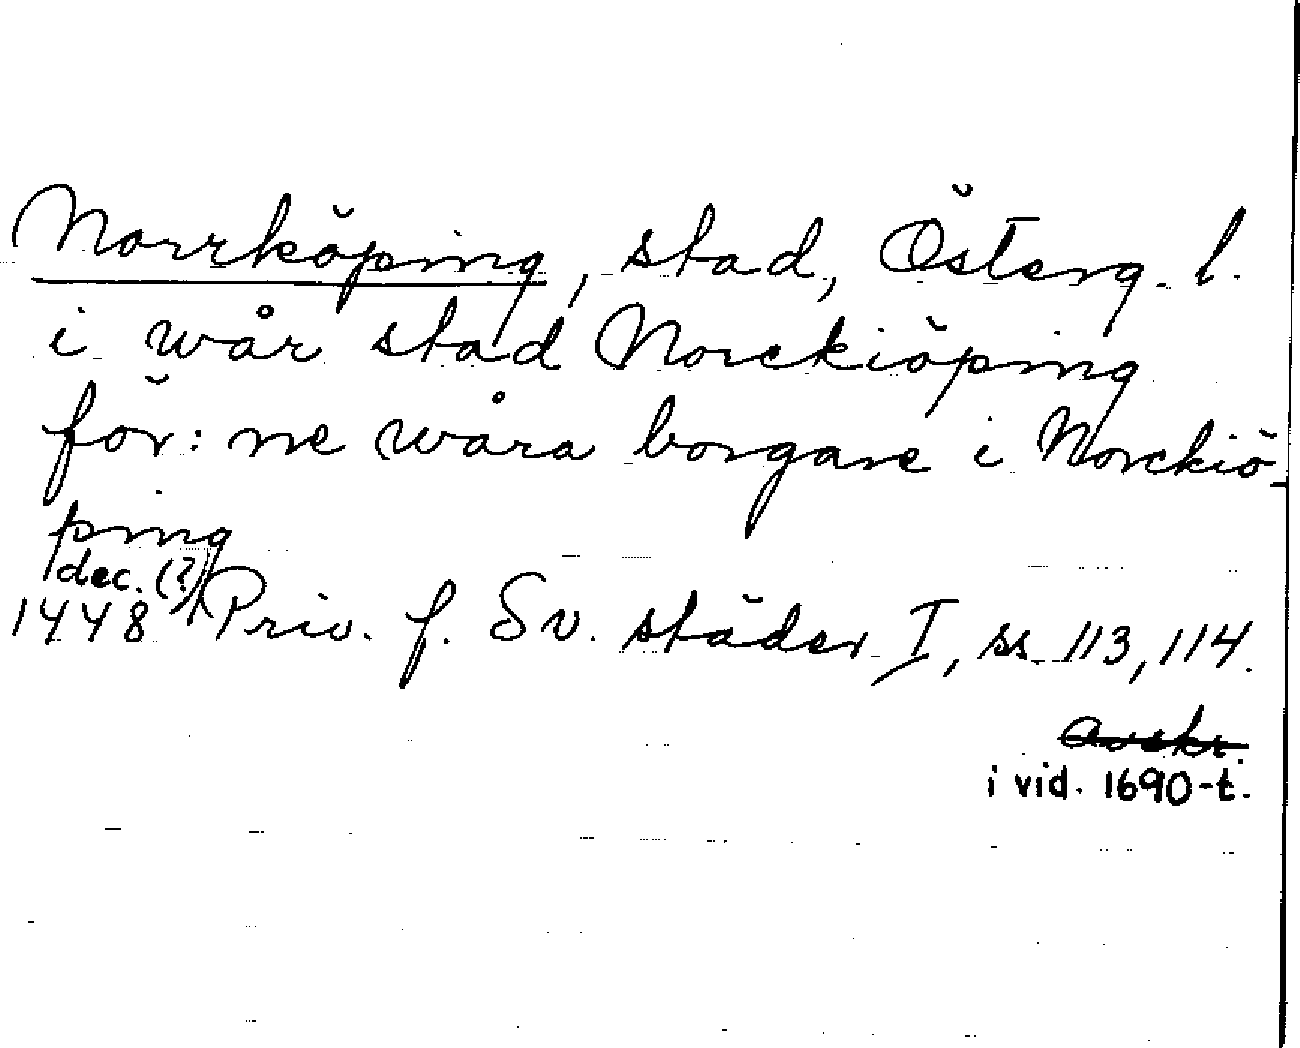 Norrköping, stad, Österg. l.
i wår stad Norckiöping
för: ne wåra borgare i Norckiö-
ping
dec. (?)
1448 Priv. f. Sv. städer I, ss. 113, 114.
avskr.
i vid. 1690-t.